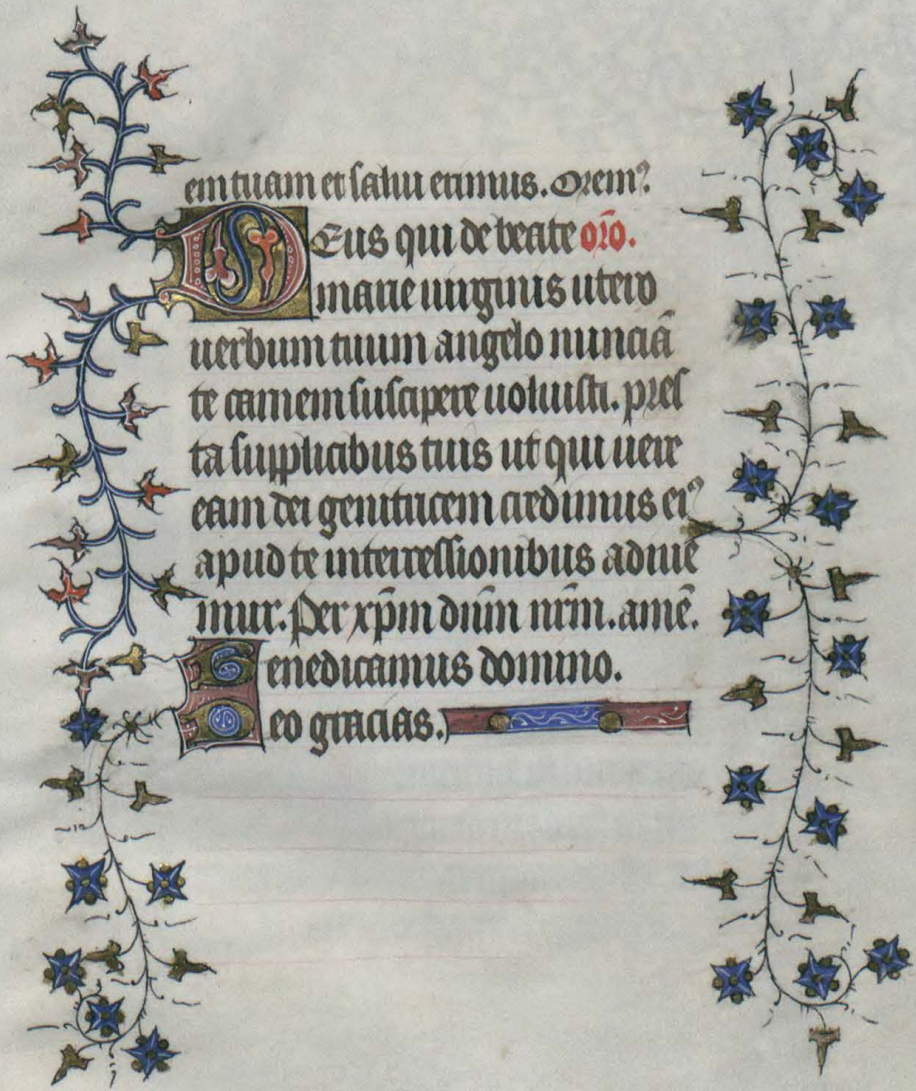 em tuam et salui erimus. Orem⁹.
Deus qui de beate oro̅.
marie uirginis utero
uerbum tuum angelo nunciā
te carnem suscipere uoluisti. pres
ta supplicibus tuis ut qui uere
eam dei genitricem credimus ei⁹
apud te intercessionibus adiuue
mur. Per xp̄m dn̄m nr̄m. amē.
Benedicamus domino.
Deo gracias.